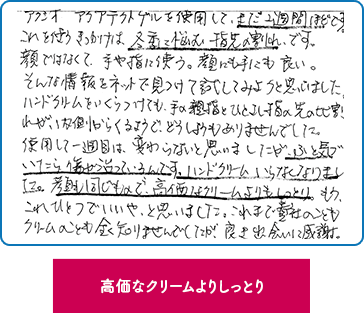 アクシオ アクアテクトゲルを使用して、まだ2週間ほどです。
これを使うきっかけは、冬、毎年悩む指先の割れ、です。
顔ではなくて、手や指に使う。顔にも手にも良い。
そんな情報をネットで見つけて試してみようと思いました。
ハンドクリームをいくらつけても、手の親指とひとさし指の先のひび割
れが、内側からくるようで、どうしようもありませんでした。
使用して一週目は、変わらないと思いましたが、ふと気づ
いたら、傷が治っているんです。ハンドクリームいらなくなりまし
た。顔も同じもので、高価なクリームよりもしっとり。もう、
これひとつでいいや、と思いました。これまで貴社のことも
クリームのことも全く知りませんでしたが良き出会いに感謝。
高価なクリームよりしっとり